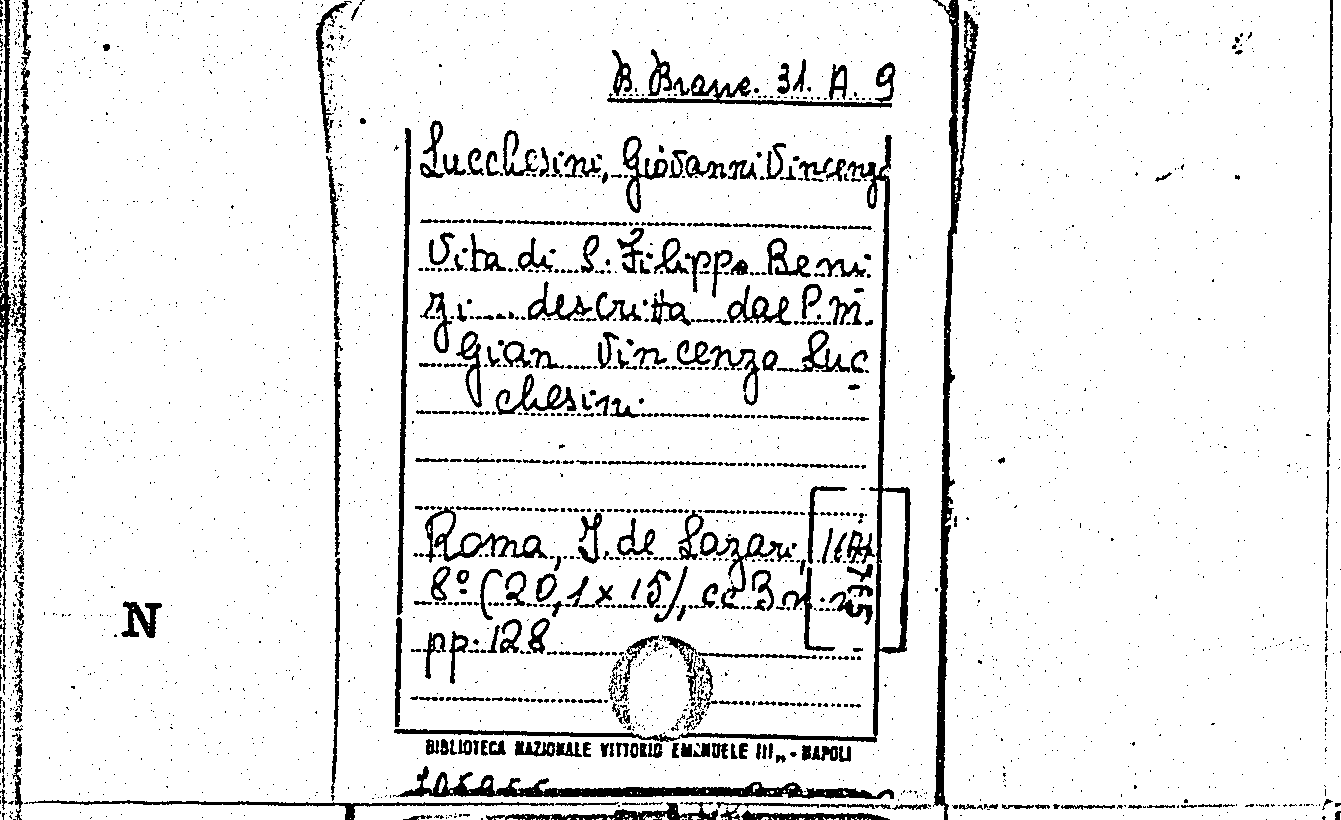 B. Branc. 31. A. 9
Lucchesini, Giovanni Vincenzo
Vita di S. Filippo Beni
zi... descritta dal P. M.
Gian Vincenzo Luc
chesini
Roma, I. de Lazari,
8º (20,1 x 15), cc 3 n. n.
pp. 128
N
BIBLIOTECA NAZIONALE VITTORIO EMANUELE III„ - NAPOLI